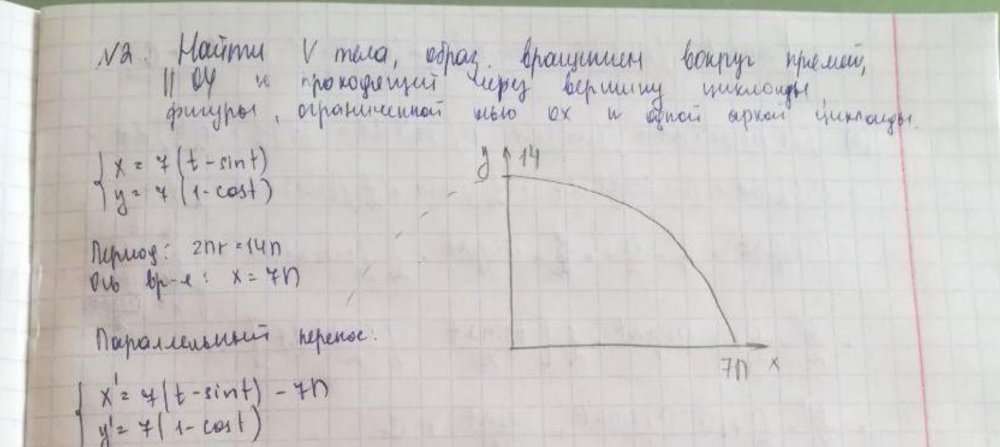 №2. Найти V тела, образ. вращением вокруг прямой,
|| OY и проходящей через вершину циклоиды,
фигуры, ограниченной осью ox и одной аркой циклоиды.
{ x = 7(t-sint)
{ y = 7(1-cost)
y 14
Период: 2πr=14π
Ось вр-я: x=7π
Параллельный перенос:
7π x
{ x' = 7(t-sint) - 7π
{ y' = 7(1-cost)